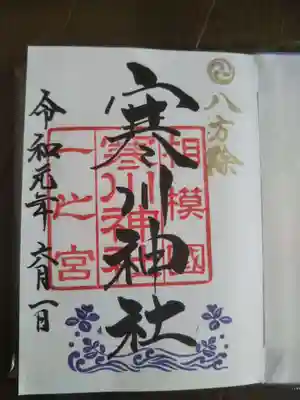 八方除
寒川神社
相模國
寒川神社
一之宮
令和元年六月一日